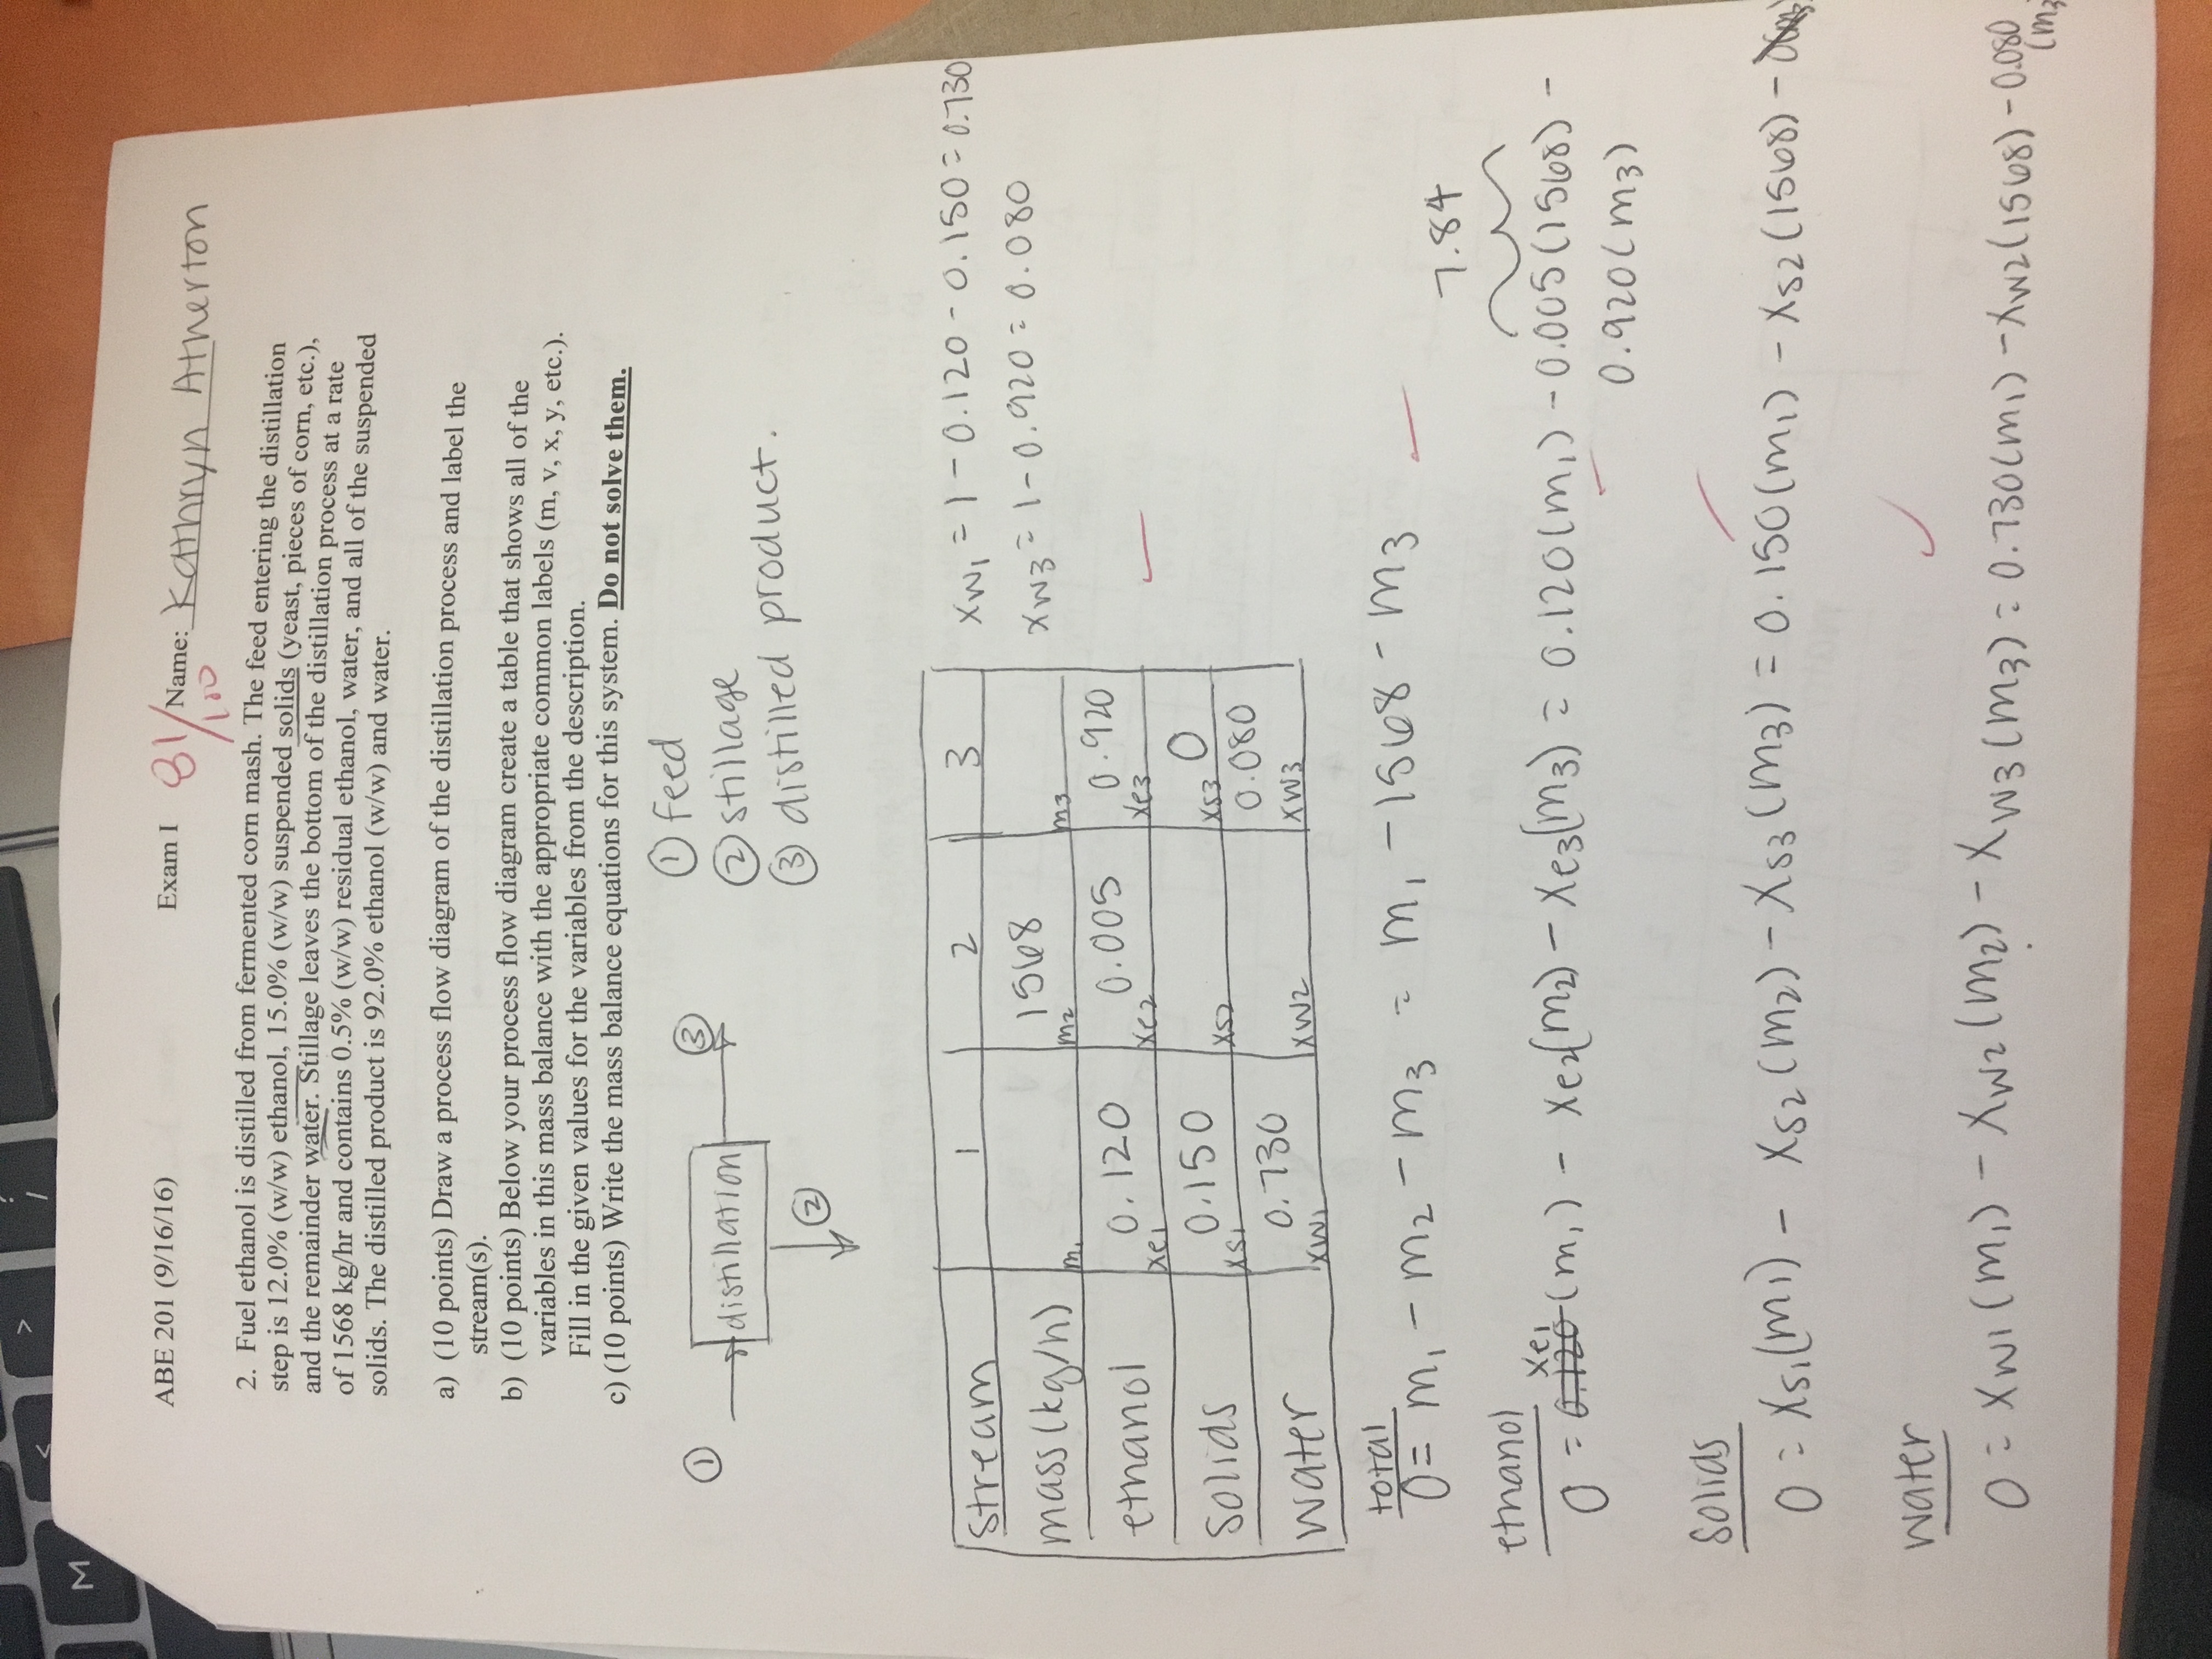 M
<
>
?
/
ABE 201 (9/16/16) Exam I 81/100 Name: Kathryn Atherton
2. Fuel ethanol is distilled from fermented corn mash. The feed entering the distillation
step is 12.0% (w/w) ethanol, 15.0% (w/w) suspended solids (yeast, pieces of corn, etc.),
and the remainder water. Stillage leaves the bottom of the distillation process at a rate
of 1568 kg/hr and contains 0.5% (w/w) residual ethanol, water, and all of the suspended
solids. The distilled product is 92.0% ethanol (w/w) and water.
a) (10 points) Draw a process flow diagram of the distillation process and label the
stream(s).
b) (10 points) Below your process flow diagram create a table that shows all of the
variables in this mass balance with the appropriate common labels (m, v, x, y, etc.).
Fill in the given values for the variables from the description.
c) (10 points) Write the mass balance equations for this system. Do not solve them.
① distillation ③
②
① feed
② stillage
③ distilled product.
stream 1 2 3
mass (kg/h) m1 1568 m2 m3
ethanol 0.120 xe1 0.005 xe2 0.920 xe3
solids 0.150 xs1 xs2 0 xs3
water 0.730 xw1 xw2 0.080 xw3
xw1 = 1 - 0.120 - 0.150 = 0.730
xw3 = 1 - 0.920 = 0.080
total
0 = m1 - m2 - m3 = m1 - 1568 - m3
7.84
ethanol
0 = 0.120 xe1 (m1) - xe2(m2) - xe3(m3) = 0.120(m1) - 0.005(1568) -
0.920(m3)
solids
0 = xs1(m1) - xs2(m2) - xs3(m3) = 0.150(m1) - xs2(1568) -
water
0 = xw1(m1) - xw2(m2) - xw3(m3) = 0.730(m1) - xw2(1568) - 0.080
(m3